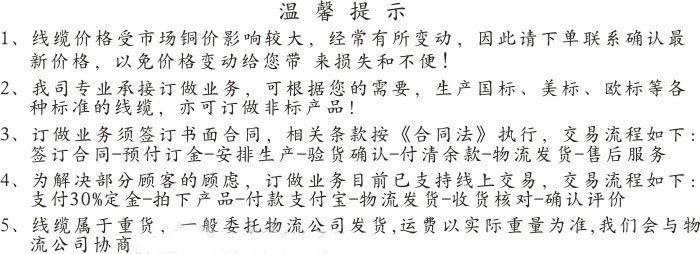 温馨提示
1、线缆价格受市场铜价影响较大，经常有所变动，因此请下单联系确认最
新价格，以免价格变动给您带 来损失和不便！
2、我司专业承接订做业务，可根据您的需要，生产国标、美标、欧标等各
种标准的线缆，亦可订做非标产品！
3、订做业务须签订书面合同，相关条款按《合同法》执行，交易流程如下：
签订合同-预付订金-安排生产-验货确认-付清余款-物流发货-售后服务
4、为解决部分顾客的顾虑，订做业务目前已支持线上交易，交易流程如下：
支付30%定金-拍下产品-付款支付宝-物流发货-收货核对-确认评价
5、线缆属于重货，一般委托物流公司发货,运费以实际重量为准,我们会与物
流公司协商